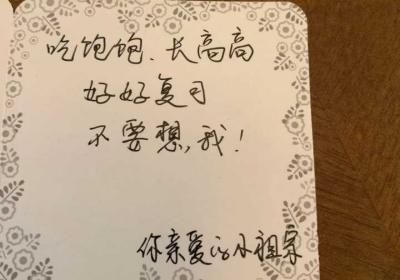 吃饱饱、长高高
好好复习
不要想,我!
你亲爱的小祖宗